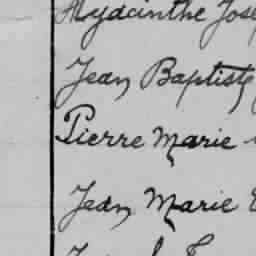 Hyacinthe Jose
Jean Baptiste
Pierre Marie
Jean Marie